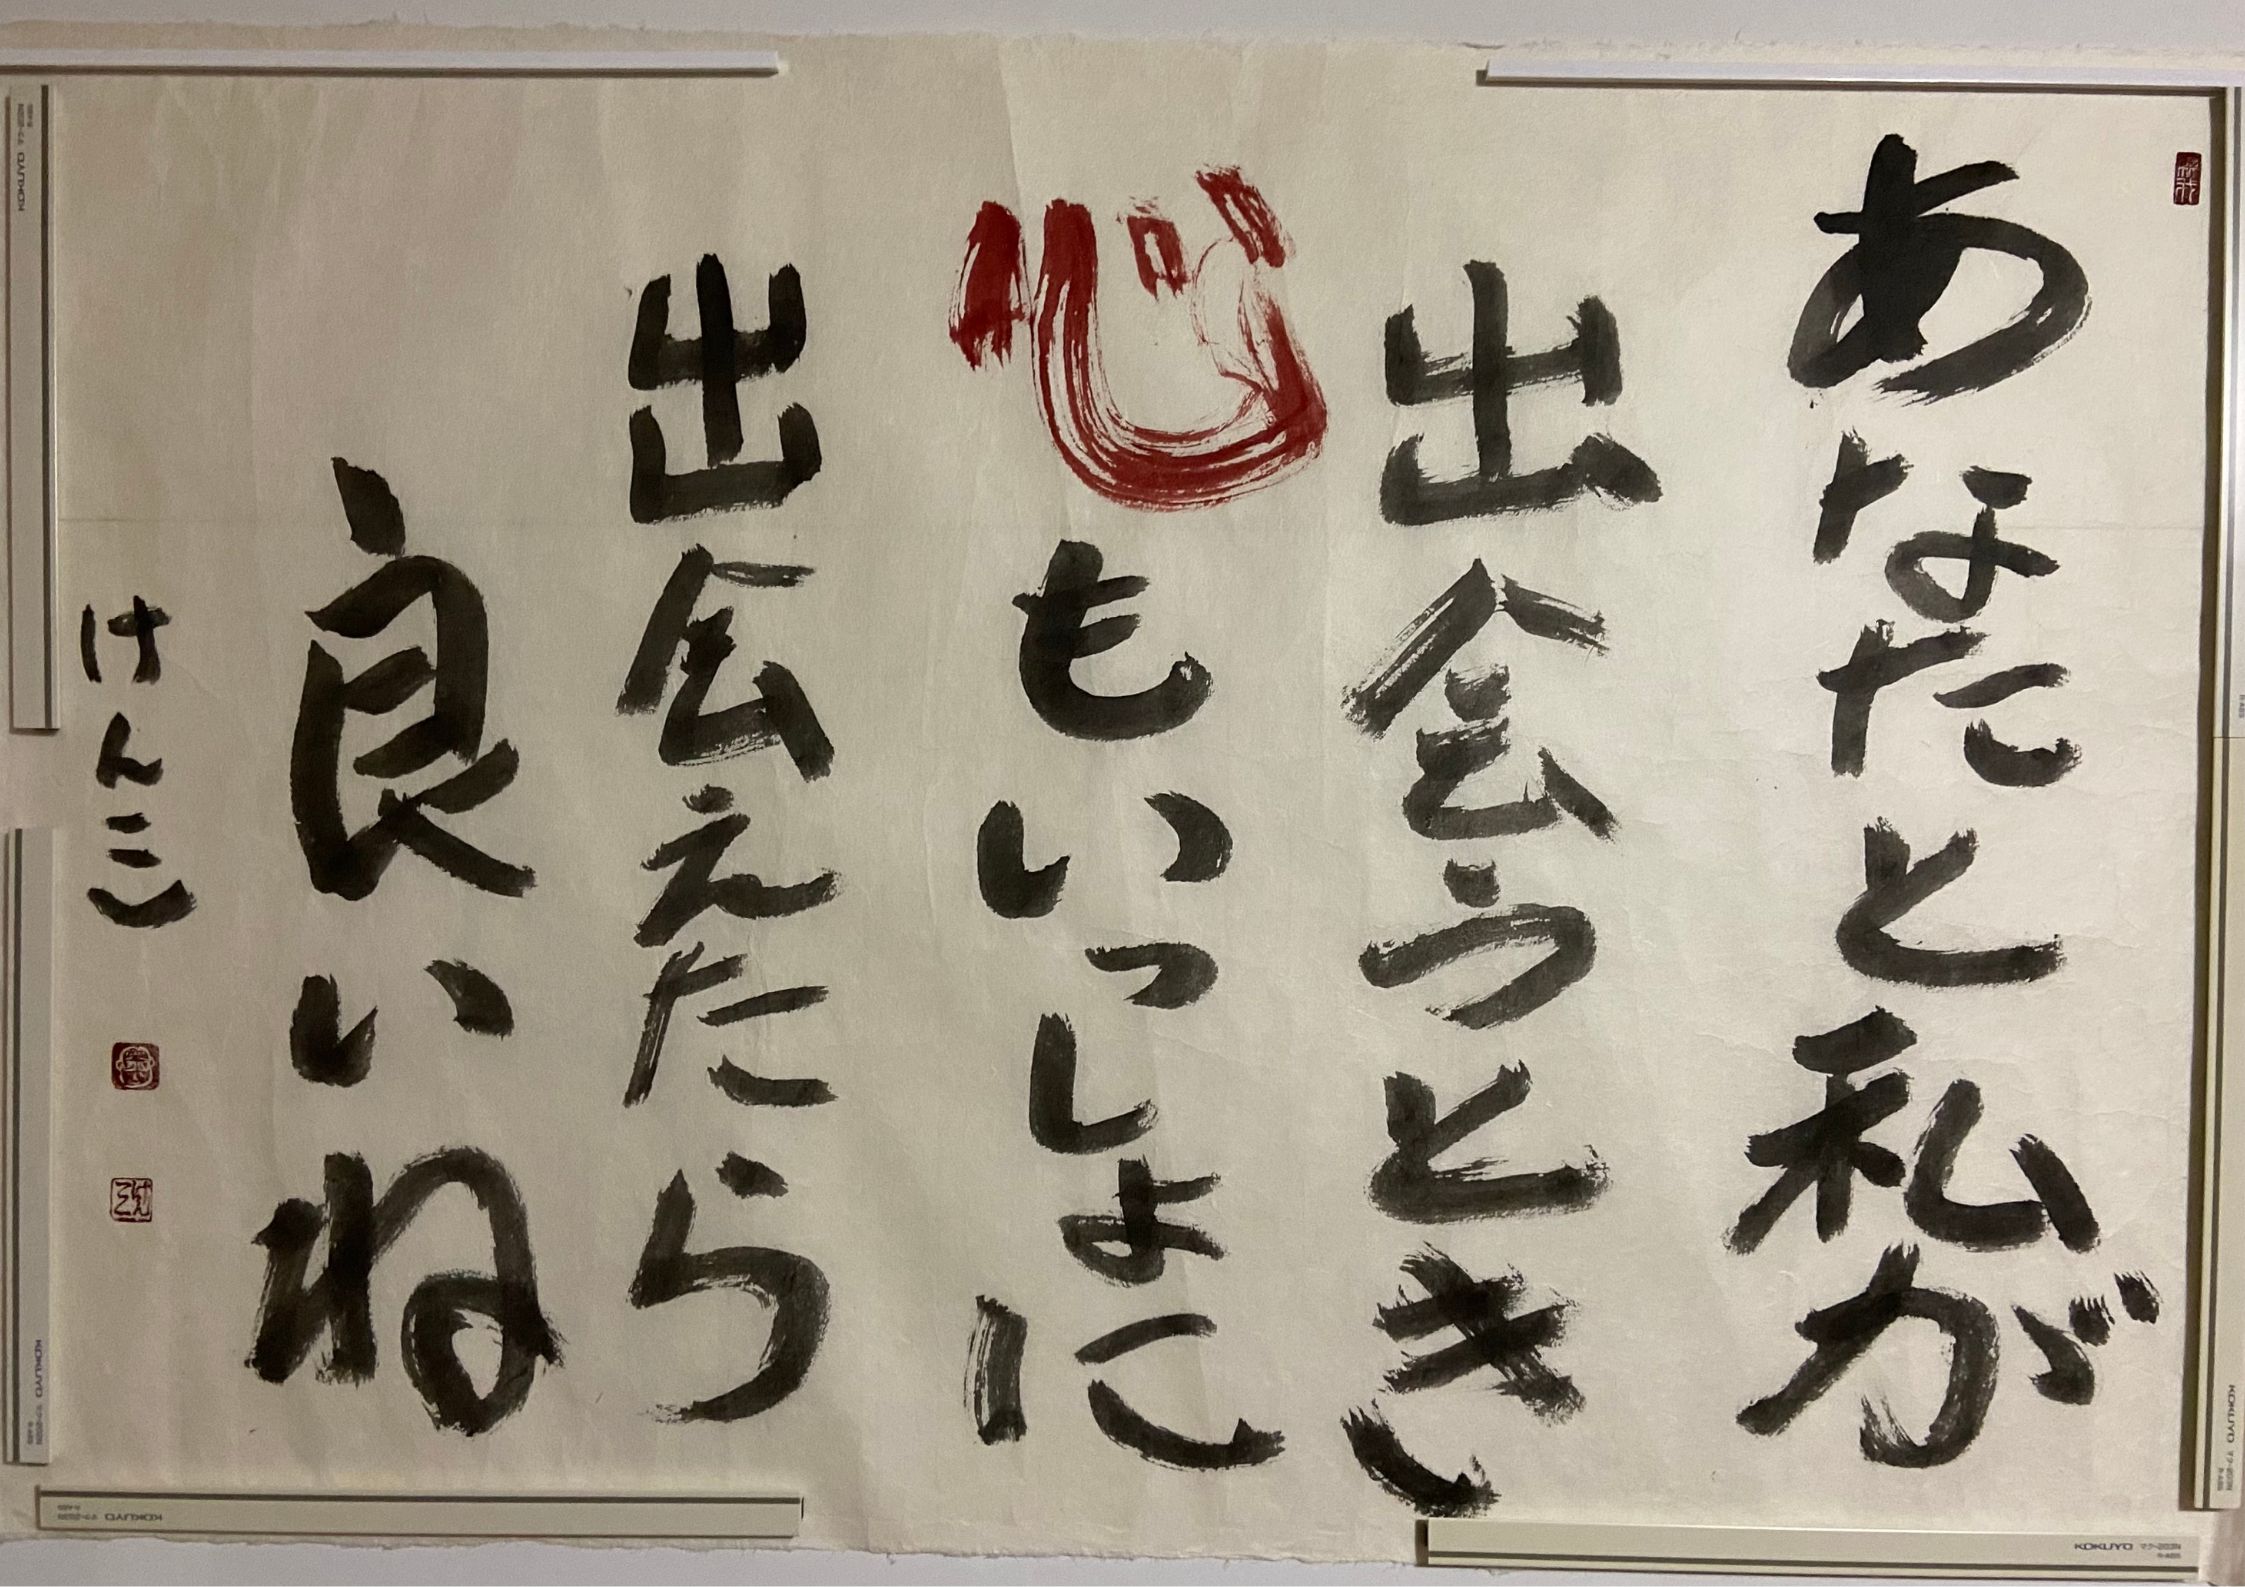 あなたと私が
出会うとき
心もいっしょに
出会えたら
良いね
けんこ
KOKUYO マク-203N
KOKUYO マク-203N
KOKUYO マク-203N
KOKUYO マク-203N
KOKUYO マク-203N